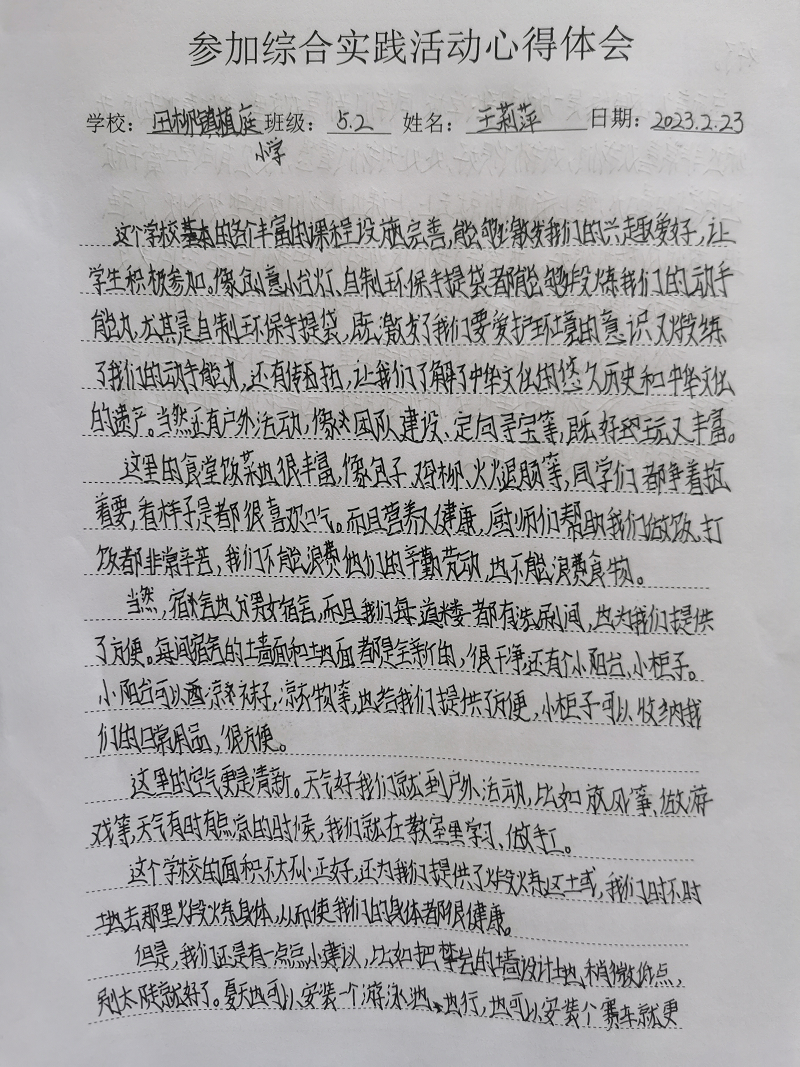 参加综合实践活动心得体会
学校：田柳镇植庭 班级：5.2 姓名：王莉萍 日期：2023.2.23
小学
这个学校基本的各个丰富的课程设施完善，能够激发我们的兴趣爱好，让
学生积极参加。像创意小台灯、自制环保手提袋都能够锻炼我们的动手
能力，尤其是自制环保手提袋，既激发了我们要爱护环境的意识又锻练
了我们的动手能力，还有传拓，让我们了解了中华文化的悠久历史和中华文化
的遗产。当然还有户外活动，像团队建设、定向寻宝等，既好玩又丰富。
这里的食堂饭菜也很丰富，像包子、鸡柳、火腿肠等，同学们都争着抢
着要，看样子是都很喜欢吃。而且营养又健康，厨师们帮助我们做饭、打
饭都非常辛苦，我们不能浪费他们的辛勤劳动，也不能浪费食物。
当然，宿舍也分男女宿舍，而且我们每一道楼都有洗漱间，也为我们提供
了方便。每间宿舍的墙面和地面都是全新的，很干净还有个小阳台、小柜子。
小阳台可以晒凉袜子，凉衣物等，也给我们提供了方便，小柜子可以收纳我
们的日常用品，很方便。
这里的空气更是清新。天气好我们就到户外活动，比如放风筝、做游
戏等，天气有时有点凉的时候，我们就在教室里学习、做手工。
这个学校的面积不大不小正好，还为我们提供了锻炼区域，我们时不时
地去那里锻炼身体，从而使我们的身体都很健康。
但是，我们还是有一点点小建议，比如把攀岩的墙设计地稍微低点，
别太陡就好了。夏天也可以安装一个游泳池、也行，也可以安装个赛车就更